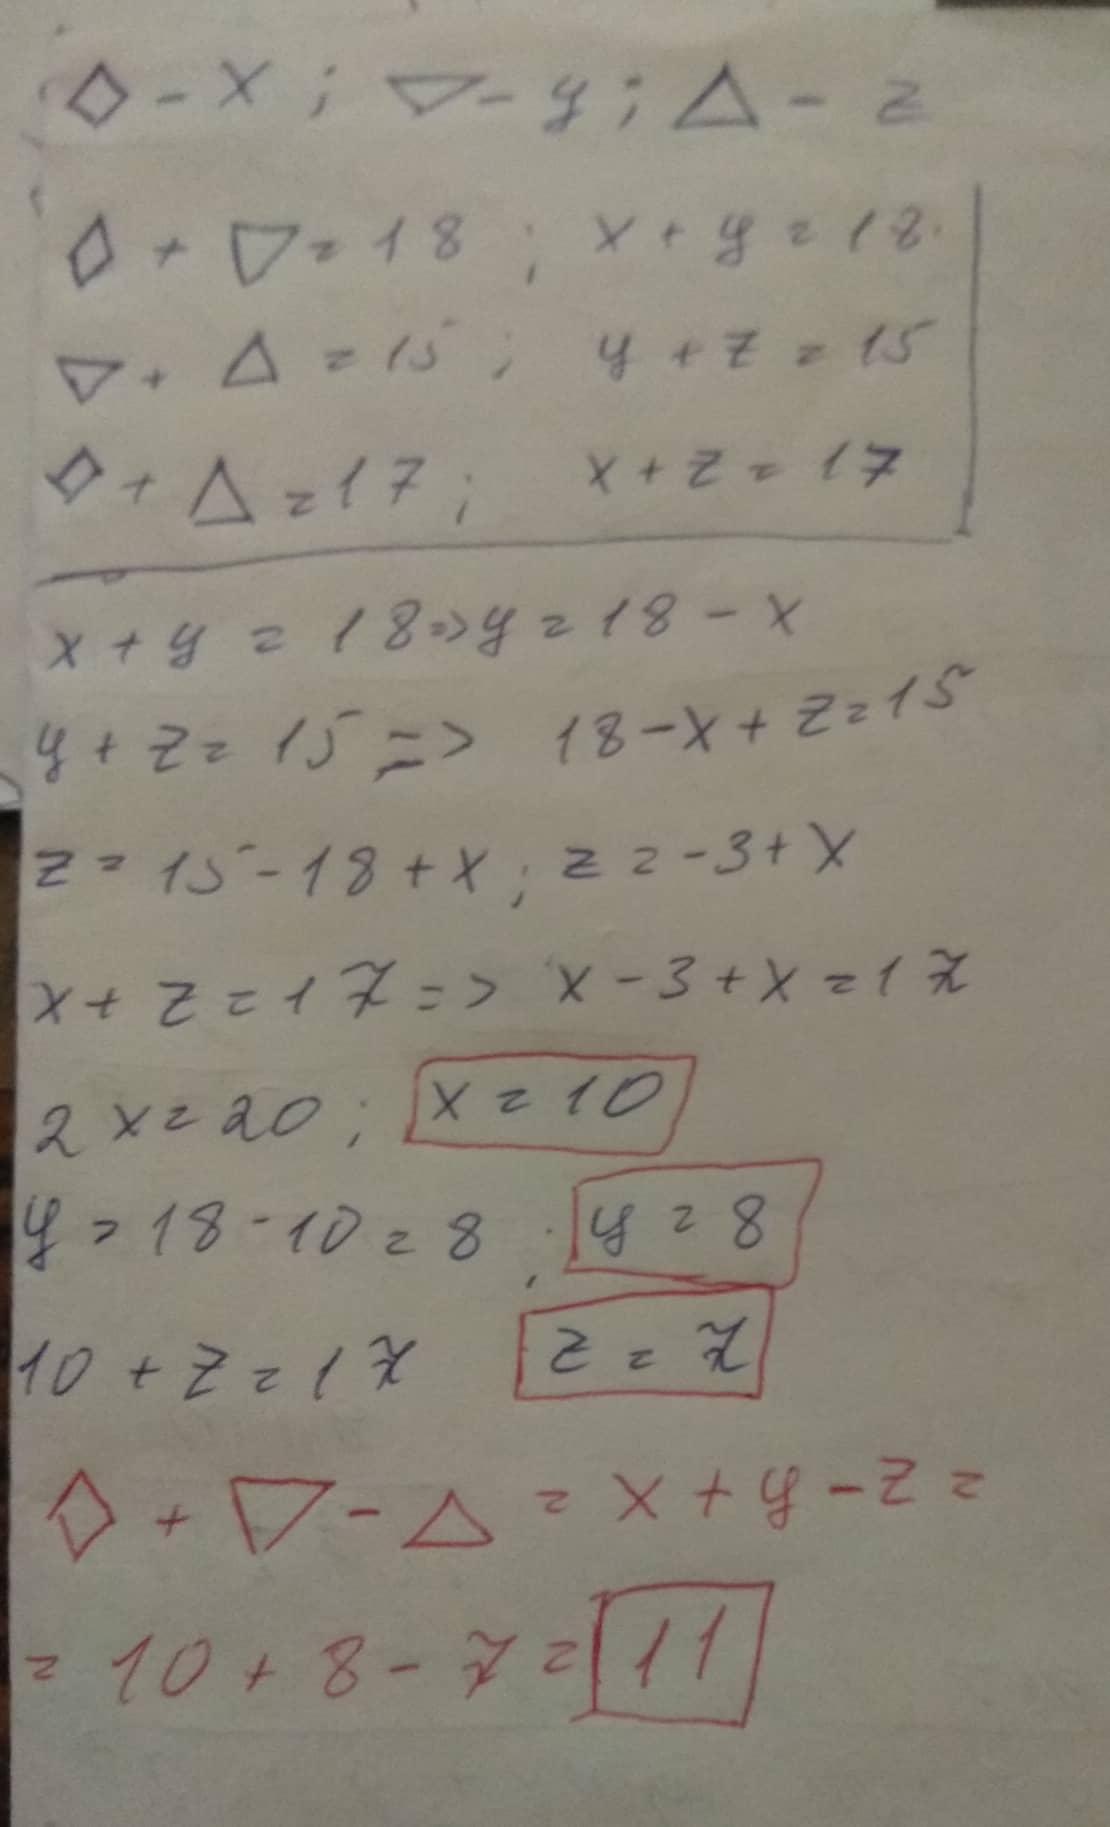 ◇ - x ; ▽ - y ; △ - z
◇ + ▽ = 18 ; x + y = 18
▽ + △ = 15 ; y + z = 15
◇ + △ = 17 ; x + z = 17
x + y = 18 => y = 18 - x
y + z = 15 => 18 - x + z = 15
z = 15 - 18 + x ; z = -3 + x
x + z = 17 => x - 3 + x = 17
2x = 20 ; x = 10
y = 18 - 10 = 8 ; y = 8
10 + z = 17 z = 7
◇ + ▽ - △ = x + y - z =
= 10 + 8 - 7 = 11